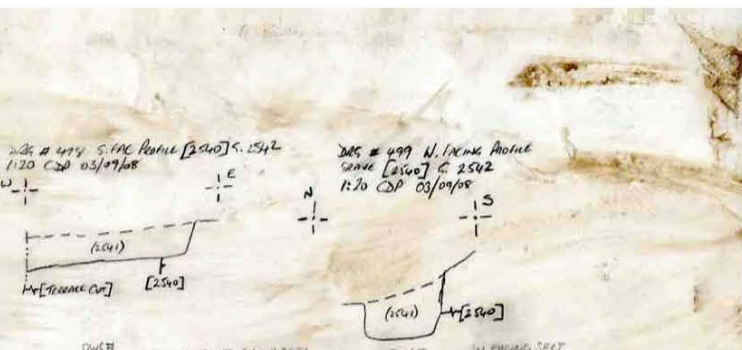 DRG # 498 S. FAC PROFILE [2540] G. 2542
1:20 CDP 03/09/08
W
E
(2541)
[TERRACE CUT]
[2540]
DRG # 499 N. FACING PROFILE
GRAVE [2540] G 2542
1:20 CDP 03/09/08
N
S
(2541)
[2540]
DWG #